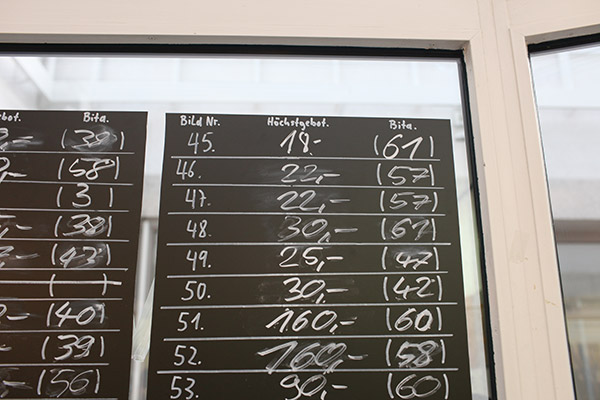 bot. Bita.
,- (39)
,- (58)
,- (3)
,- (39)
,- (43)
( )
,- (40)
,- (39)
,- (56)
Bild Nr. Höchstgebot. Bita.
45. 18.- (61)
46. 22,- (57)
47. 22,- (57)
48. 30,- (61)
49. 25,- (47)
50. 30,- (42)
51. 160,- (60)
52. 160,- (58)
53. 90,- (60)